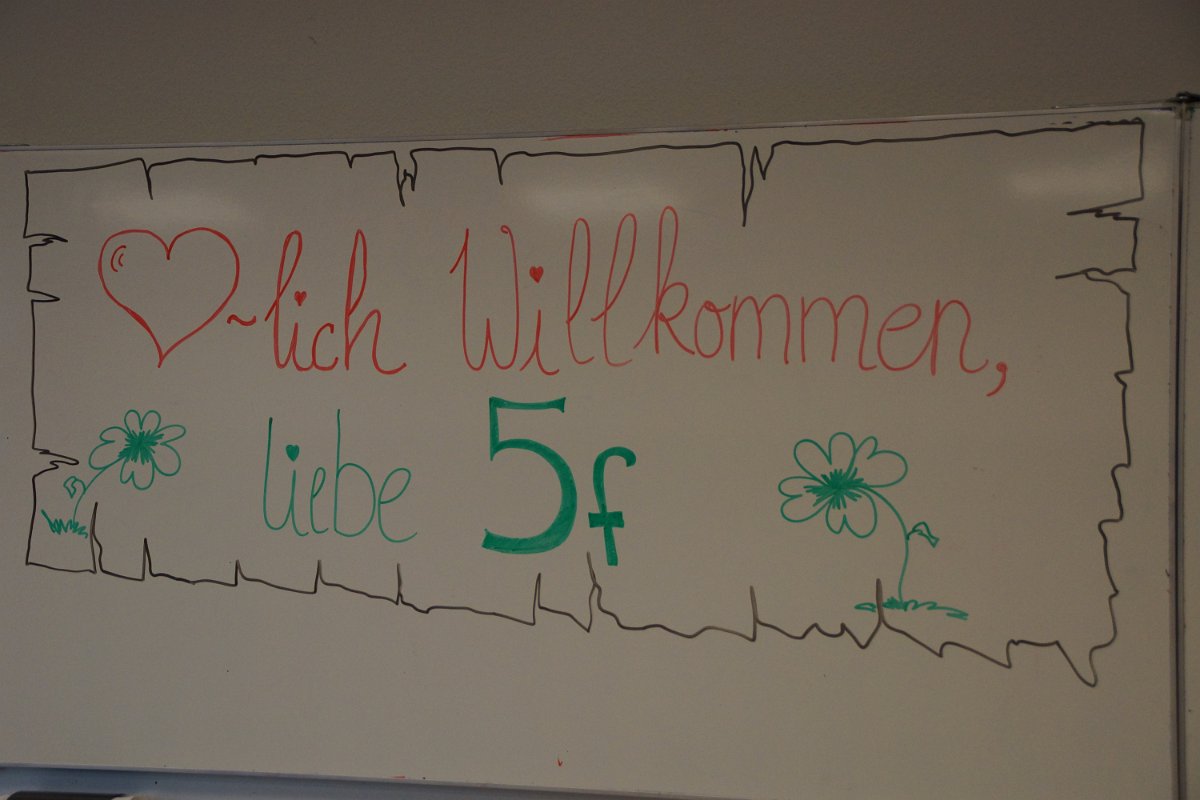 ♥~lich Willkommen,
liebe 5f